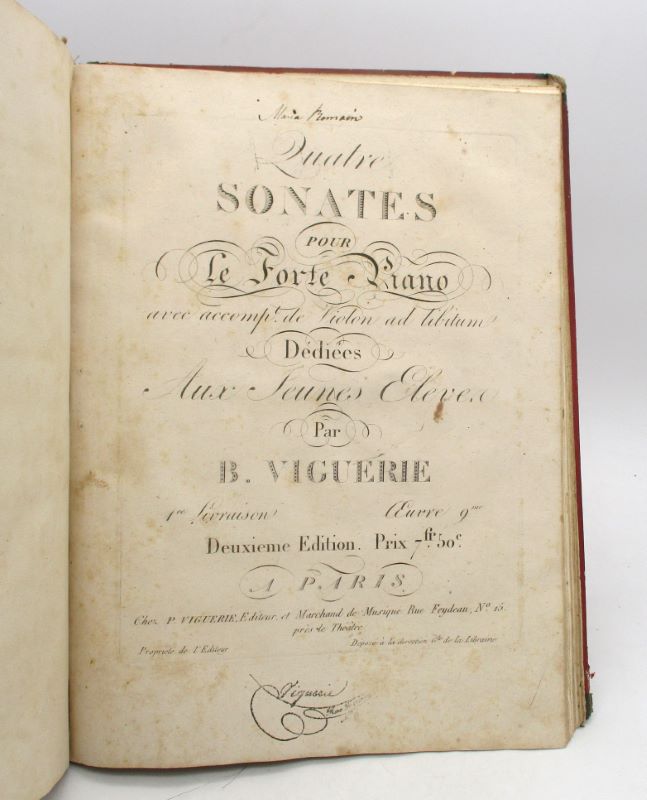 Maria Romain
Quatre
SONATES
POUR
Le Forte Piano
avec accompt. de Violon ad Libitum
Dédiées
Aux Jeunes Eleves.
Par
B. VIGUERIE
1re. Livraison Œuvre 9me
Deuxieme Edition. Prix 7fr. 50c.
A PARIS.
Chez P. VIGUERIE, Editeur et Marchand de Musique Rue Feydeau, No. 15.
près le Théâtre.
Propriété de l'Editeur Déposé à la direction Gle. de la Librairie